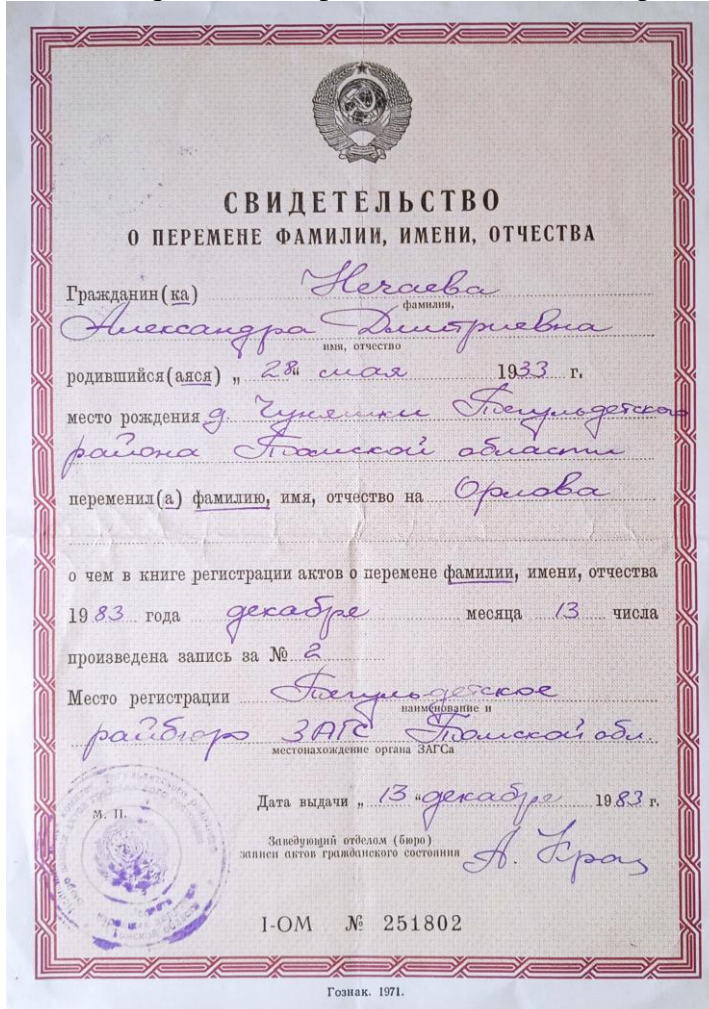 СВИДЕТЕЛЬСТВО
О ПЕРЕМЕНЕ ФАМИЛИИ, ИМЕНИ, ОТЧЕСТВА
Гражданин(ка) Нечаева
фамилия,
Александра Дмитриевна
имя, отчество
родившийся(аяся) „ 28 “ мая 1933 г.
место рождения д. Тегульдетского
района Томской области
переменил(а) фамилию, имя, отчество на Орлова
о чем в книге регистрации актов о перемене фамилии, имени, отчества
1983 года декабре месяца 13 числа
произведена запись за № 2
Место регистрации Тегульдетское
наименование и
райбюро ЗАГС Томской обл.
местонахождение органа ЗАГСа
Дата выдачи „ 13 “ декабре 1983 г.
М. П.
Заведующий отделом (бюро)
записи актов гражданского состояния А.
I-ОМ № 251802
Гознак. 1971.